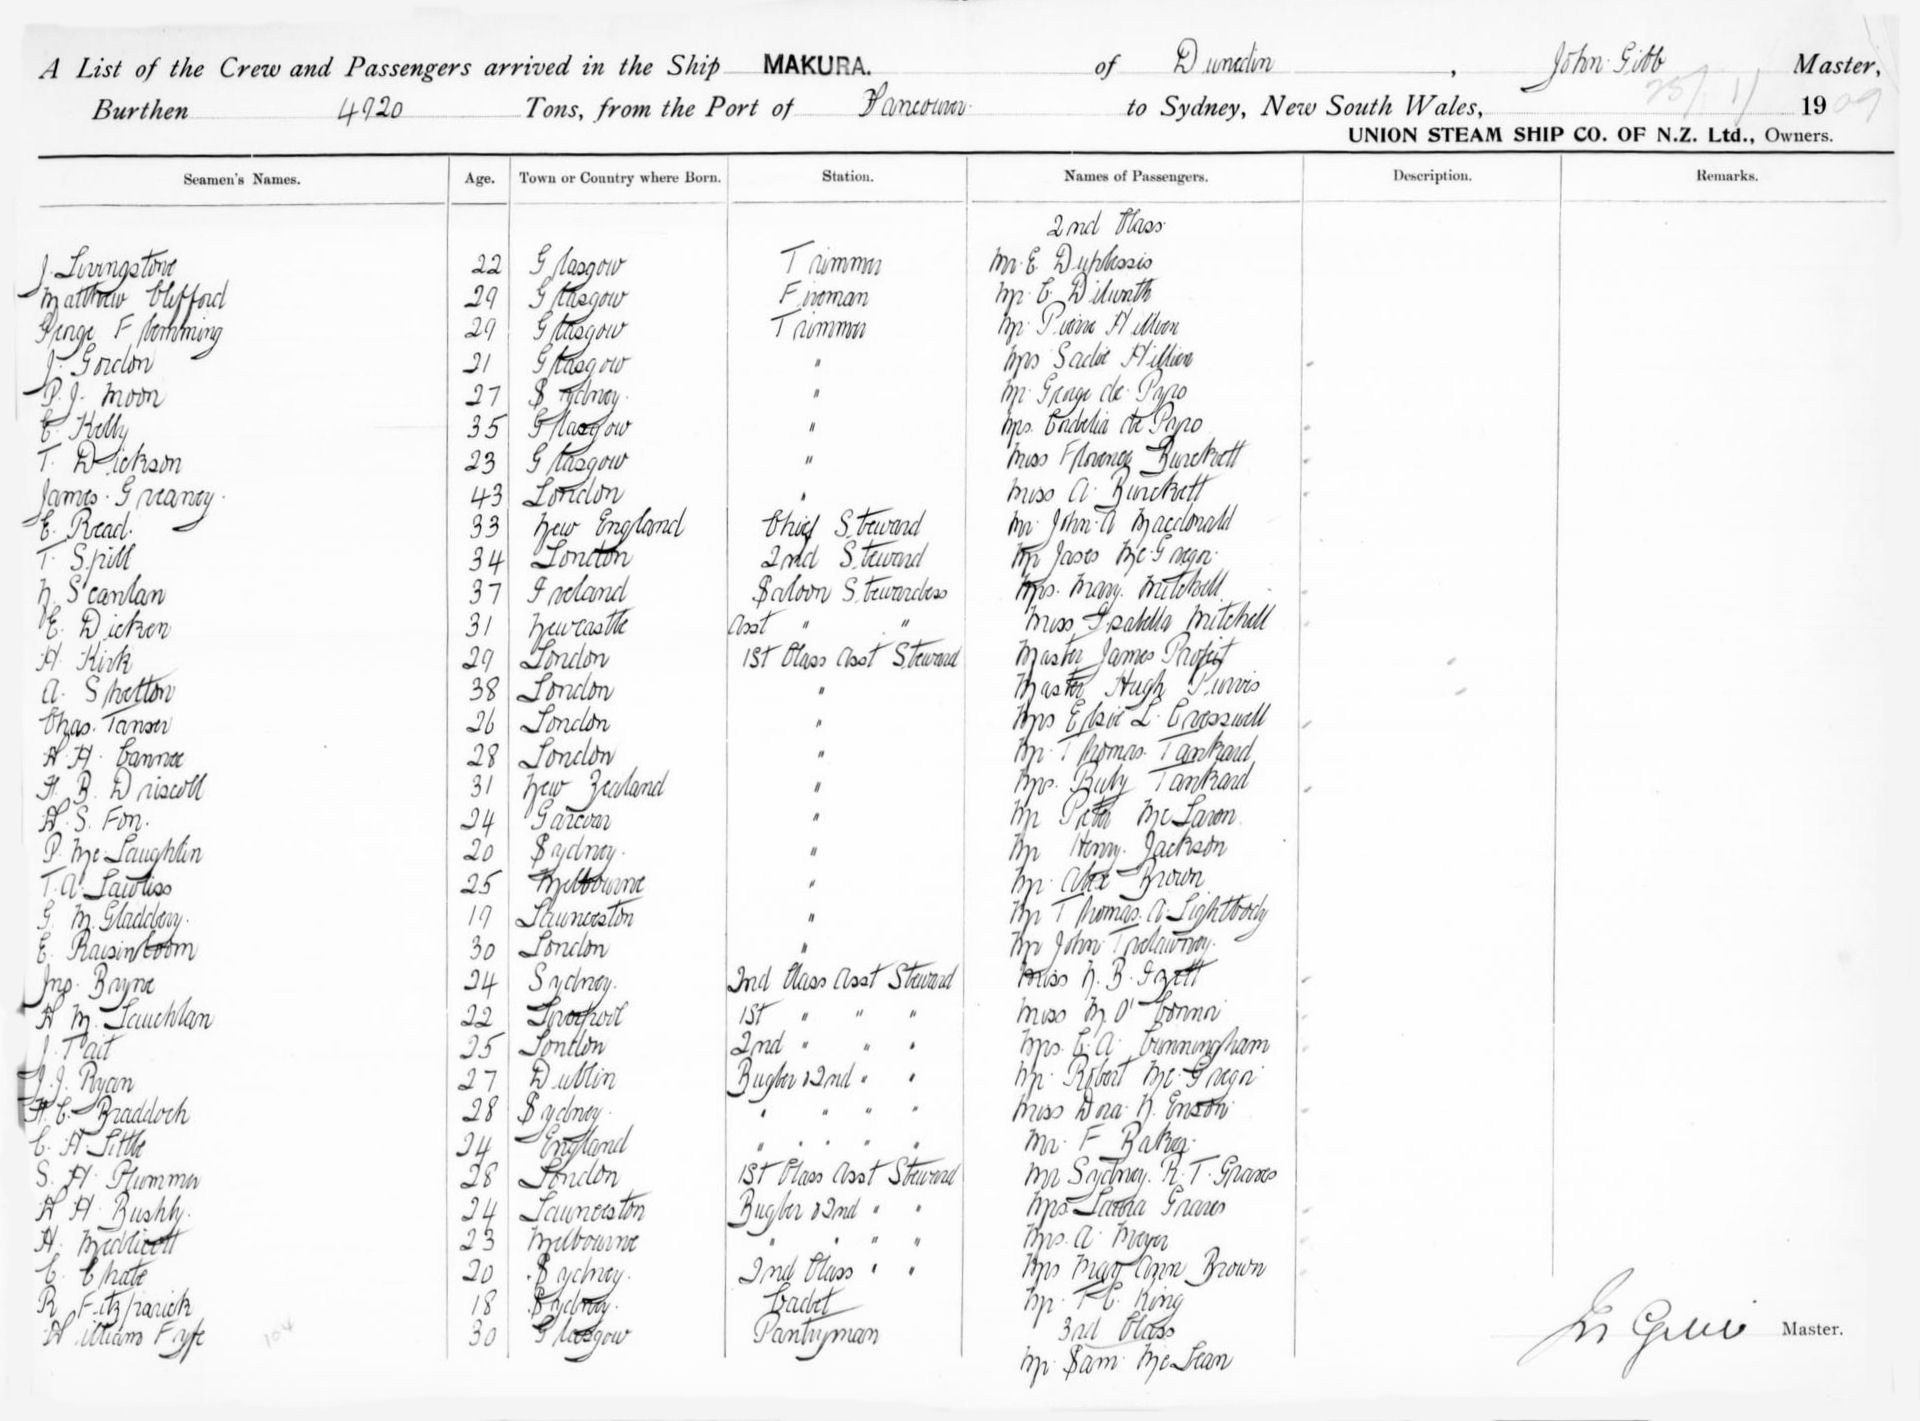 A List of the Crew and Passengers arrived in the Ship MAKURA. of Dunedin, John Gibb Master,
Burthen 4920 Tons, from the Port of Vancouver to Sydney, New South Wales, 25/11/1909
UNION STEAM SHIP CO. OF N.Z. Ltd., Owners.
Seamen's Names. Age. Town or Country where Born. Station. Names of Passengers. Description. Remarks.
2nd Class
J. Livingstone 22 Glasgow Trimmer Mr. E. Duplessis
Matthew Clifford 29 Glasgow Fireman Mr. C. Dilworth
George Flemming 29 Glasgow Trimmer Mr. Pierre Hillion
J. Gordon 21 Glasgow " Mrs Sadie Hillion
P. J. Moon 27 Sydney. " Mr. George de Pyro
E. Kelly 35 Glasgow " Mrs. Cordelia de Pyro
T. Dickson 23 Glasgow " Miss Florence Burckett
James Greaney. 43 London " Miss A. Burckett
E. Read. 33 New England Chief Steward Mr. John A Macdonald
T. Spill 34 London 2nd Steward Mr James McGregor
N. Scanlan 37 Ireland Saloon Stewardess Mrs. Mary Mitchell
E. Dicken 31 Newcastle Asst " " Miss Isabella Mitchell
H. Kirk 29 London 1st Class Asst Steward Master James Profeit
A. Shelton 38 London " Master Hugh Purvis
Chas. Tanser 26 London " Mrs Elsie L. Cresswell
H. Cannee 28 London " Mr. Thomas Tankard
H. B. Driscoll 31 New Zealand " Mrs. Ruby Tankard
S. Fon. 24 " Mr Peter McLaren
P. McLaughlin 20 Sydney. " Mr Henry Jackson
T. A. Lawliss 25 Melbourne " Mr. Alex Brown
G. M. Gladdery. 19 Launceston " Mr Thomas A. Lightbody
E. Raisinboom 30 London " Mr John Trelawney.
Jno. Bryne 24 Sydney. 2nd Class Asst Steward Miss N. B. Izett
M. Lauchlan 22 Liverpool 1st " " " Miss M. O'Connor
J. Tait 25 London 2nd " " " Mrs. C. A. Cunningham
J. J. Ryan 27 Dublin Bugler & 2nd " " Mr. Robert McGregor
H. C. Braddock 28 Sydney. " " " " Miss Dora N. Enson
C. H. Little 24 England " " " " " Mr. F Baker.
S. H. Plummer 28 London 1st Class Asst Steward Mr Sydney R. T. Graves
H. Bushby. 24 Launceston Bugler & 2nd " " Mrs Laura Graves
H. Medlicott 23 Melbourne " " " " Mrs. A. Meyer
C. Chate 20 Sydney. 2nd Class " " Mrs Mary Ann Brown
R Fitzpatrick 18 Sydney. Cadet Mr. T. C. King
William Fyfe 30 Glasgow Pantryman 3rd Class
104
Mr. Sam McLean
Jn Gibb Master.